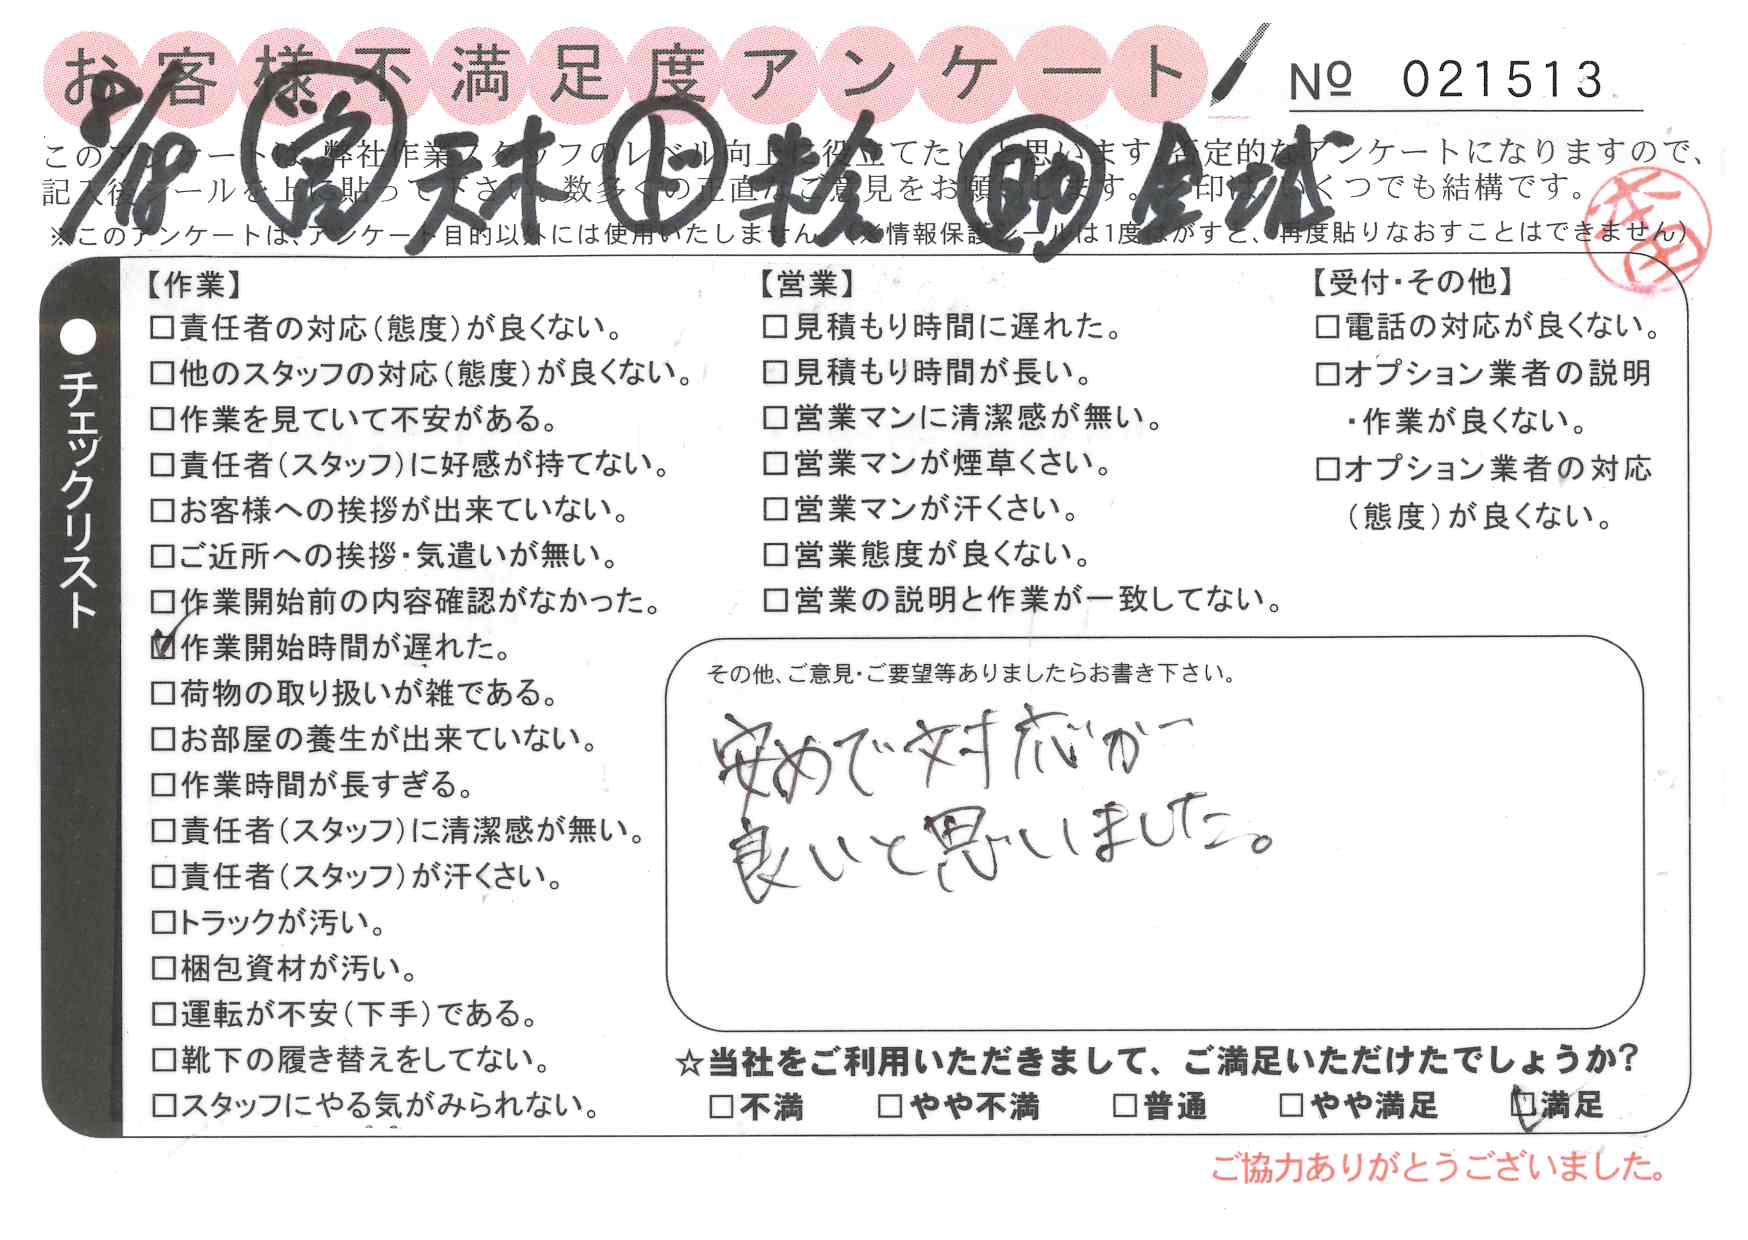 お客様不満足度アンケート
№ 021513
8/18 営 天木 ド 助
このアンケートは、弊社作業スタッフのレベル向上に役立てたいと思います。否定的なアンケートになりますので、
記入後シールを上に貼って下さい。数多くの正直なご意見をお願いします。✓印は、いくつでも結構です。
※このアンケートは、アンケート目的以外には使用いたしません。(※情報保護シールは1度はがすと、再度貼りなおすことはできません)
本田
●チェックリスト
【作業】
□責任者の対応(態度)が良くない。
□他のスタッフの対応(態度)が良くない。
□作業を見ていて不安がある。
□責任者(スタッフ)に好感が持てない。
□お客様への挨拶が出来ていない。
□ご近所への挨拶・気遣いが無い。
□作業開始前の内容確認がなかった。
☑作業開始時間が遅れた。
□荷物の取り扱いが雑である。
□お部屋の養生が出来ていない。
□作業時間が長すぎる。
□責任者(スタッフ)に清潔感が無い。
□責任者(スタッフ)が汗くさい。
□トラックが汚い。
□梱包資材が汚い。
□運転が不安(下手)である。
□靴下の履き替えをしてない。
□スタッフにやる気がみられない。
【営業】
□見積もり時間に遅れた。
□見積もり時間が長い。
□営業マンに清潔感が無い。
□営業マンが煙草くさい。
□営業マンが汗くさい。
□営業態度が良くない。
□営業の説明と作業が一致してない。
【受付・その他】
□電話の対応が良くない。
□オプション業者の説明
・作業が良くない。
□オプション業者の対応
(態度)が良くない。
その他、ご意見・ご要望等ありましたらお書き下さい。
安めで対応が
良いと思いました。
☆当社をご利用いただきまして、ご満足いただけたでしょうか?
□不満 □やや不満 □普通 □やや満足 ☑満足
ご協力ありがとうございました。